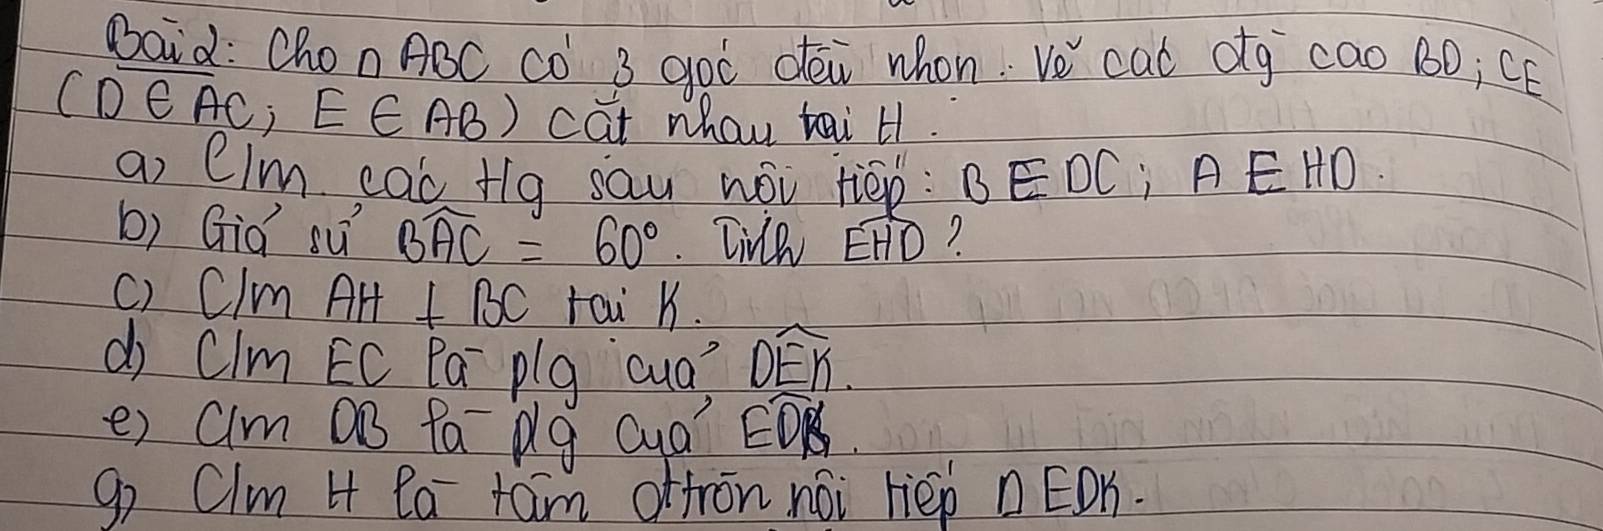 Bài 2: Cho Δ ABC có 3 góc đều nhọn. Vẽ các đg cao BD; CE
(D ∈ AC; E ∈ AB) cắt nhau tại H.
a) C/m các tg sau nội tiếp: BEDC; AEHD.
b) Giả sử \widehat{BAC} = 60°. Tính \widehat{EHD}?
c) C/m AH ⊥ BC tại K.
d) C/m EC là p/g của \widehat{DEK}.
e) C/m DB là p/g của \widehat{EDK}.
g) C/m H là tâm đ/tròn nội tiếp Δ EDK.